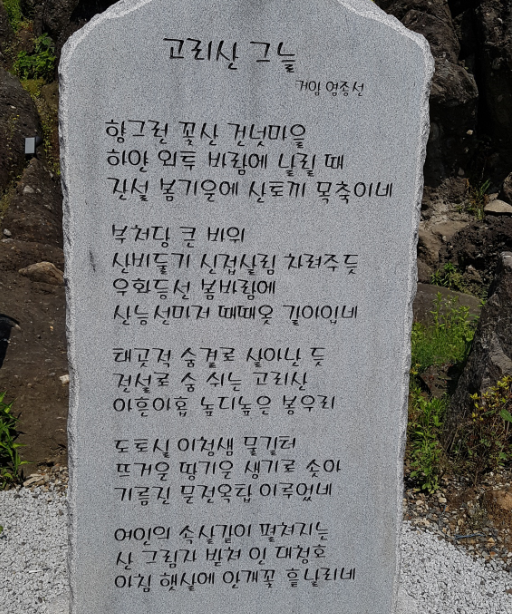 고리산 그늘
거암 엄종선
향그런 꽃산 건넛마을
하얀 외투 바람에 날릴 때
진설 봄기운에 산토끼 목축이네
부처당 큰 바위
산비둘기 신접살림 차려주듯
우화등선 봄바람에
산능선마저 때때옷 갈아입네
태곳적 숨결로 살아난 듯
전설로 숨 쉬는 고리산
아흔아홉 높디높은 봉우리
도토실 이첨샘 물길터
뜨거운 땅기운 생기로 솟아
기름진 문전옥답 이루었네
여인의 속살같이 펼쳐지는
산 그림자 받쳐 인 대청호
아침 햇살에 안개꽃 흩날리네